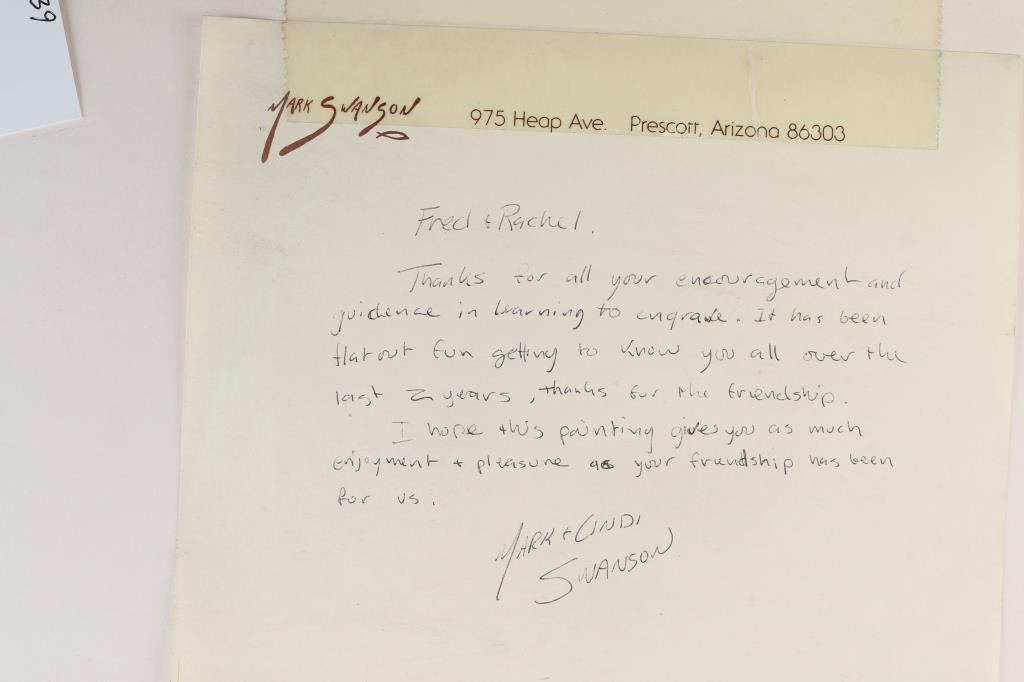 39
MARK SWANSON 975 Heap Ave. Prescott, Arizona 86303
Fred + Rachel.
Thanks for all your encouragement and
guidence in learning to engrave. It has been
flat out fun getting to know you all over the
last 2 years, thanks for the friendship.
I hope this painting gives you as much
enjoyment + pleasure as your friendship has been
for us.
MARK + CINDI
SWANSON